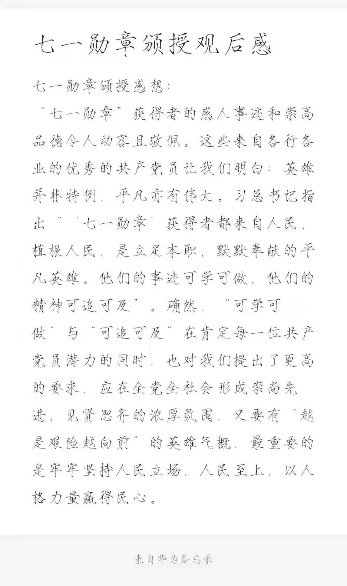 七一勋章颁授观后感
七一勋章颁授感想：
“七一勋章”获得者的感人事迹和崇高
品德令人动容且敬佩。这些来自各行各
业的优秀的共产党员让我们明白：英雄
并非特例，平凡亦有伟大。习总书记指
出“‘七一勋章’获得者都来自人民、
植根人民，是立足本职、默默奉献的平
凡英雄。他们的事迹可学可做，他们的
精神可追可及”。确然，“可学可
做”与“可追可及”在肯定每一位共产
党员潜力的同时，也对我们提出了更高
的要求，应在全党全社会形成崇尚先
进、见贤思齐的浓厚氛围，又要有“越
是艰险越向前”的英雄气概，最重要的
是牢牢坚持人民立场，人民至上，以人
格力量赢得民心。
来自华为备忘录